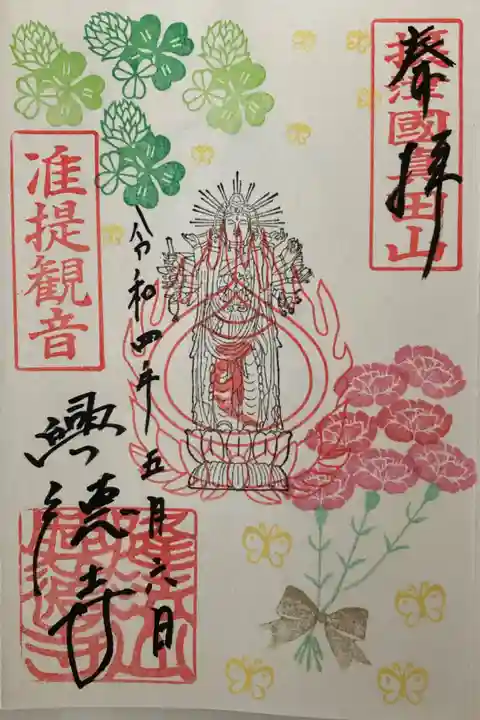 奉拝
摂津國真田山
令和四年五月六日
准提観音
興徳寺